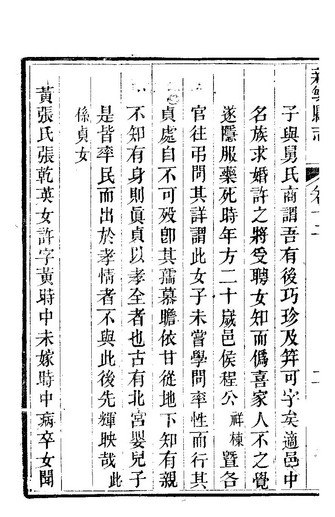 新繁縣志 卷十二 二
子與舅氏商謂吾有後巧珍及笄可字矣適邑中
名族求婚許之將受聘女知而僞喜家人不之覺
遂隱服藥死時年方二十歲邑侯程公祥棟暨各
官往弔問其詳謂此女子未嘗學問率性而行其
貞處自不可歿卽其孺慕瞻依甘從地下知有親
不知有身則眞貞以孝全者也古有北宮嬰兒子
是皆率民而出於孝情者不與此後先輝映哉此
係貞女
黃張氏張乾英女許字黃時中未嫁時中病卒女聞